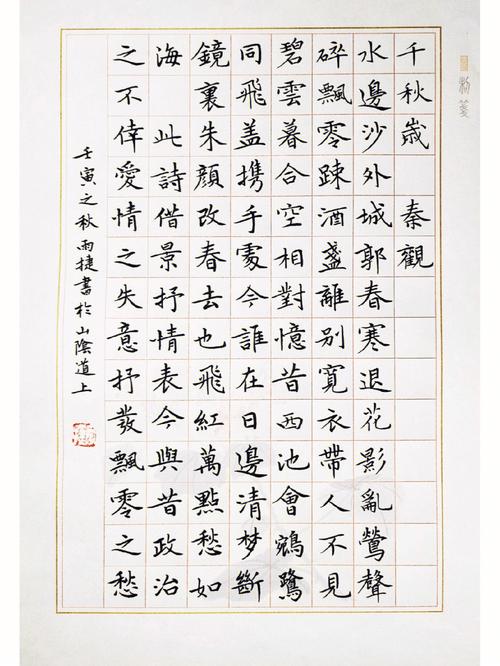 千秋歲 秦觀
水邊沙外城郭春寒退花影亂鶯聲
碎飄零踈酒盞離別寬衣帶人不見
碧雲暮合空相對憶昔西池會鵷鷺
同飛盖携手處今誰在日邊清梦斷
鏡裏朱顏改春去也飛紅萬點愁如
海 此詩借景抒情表今與昔政治
之不倖愛情之失意抒發飄零之愁
壬寅之秋雨捷書於山陰道上